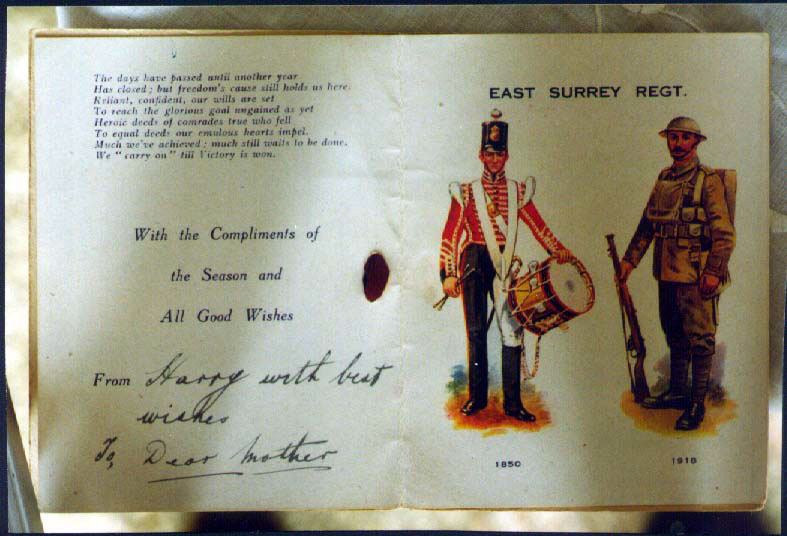 The days have passed until another year
Has closed; but freedom's cause still holds us here.
Reliant, confident, our wills are set
To reach the glorious goal ungained as yet
Heroic deeds of comrades true who fell
To equal deeds our emulous hearts impel.
Much we've achieved; much still waits to be done.
We "carry on" till Victory is won.
With the Compliments of
the Season and
All Good Wishes
From Harry with best
wishes
To, Dear Mother
EAST SURREY REGT.
1850
1918